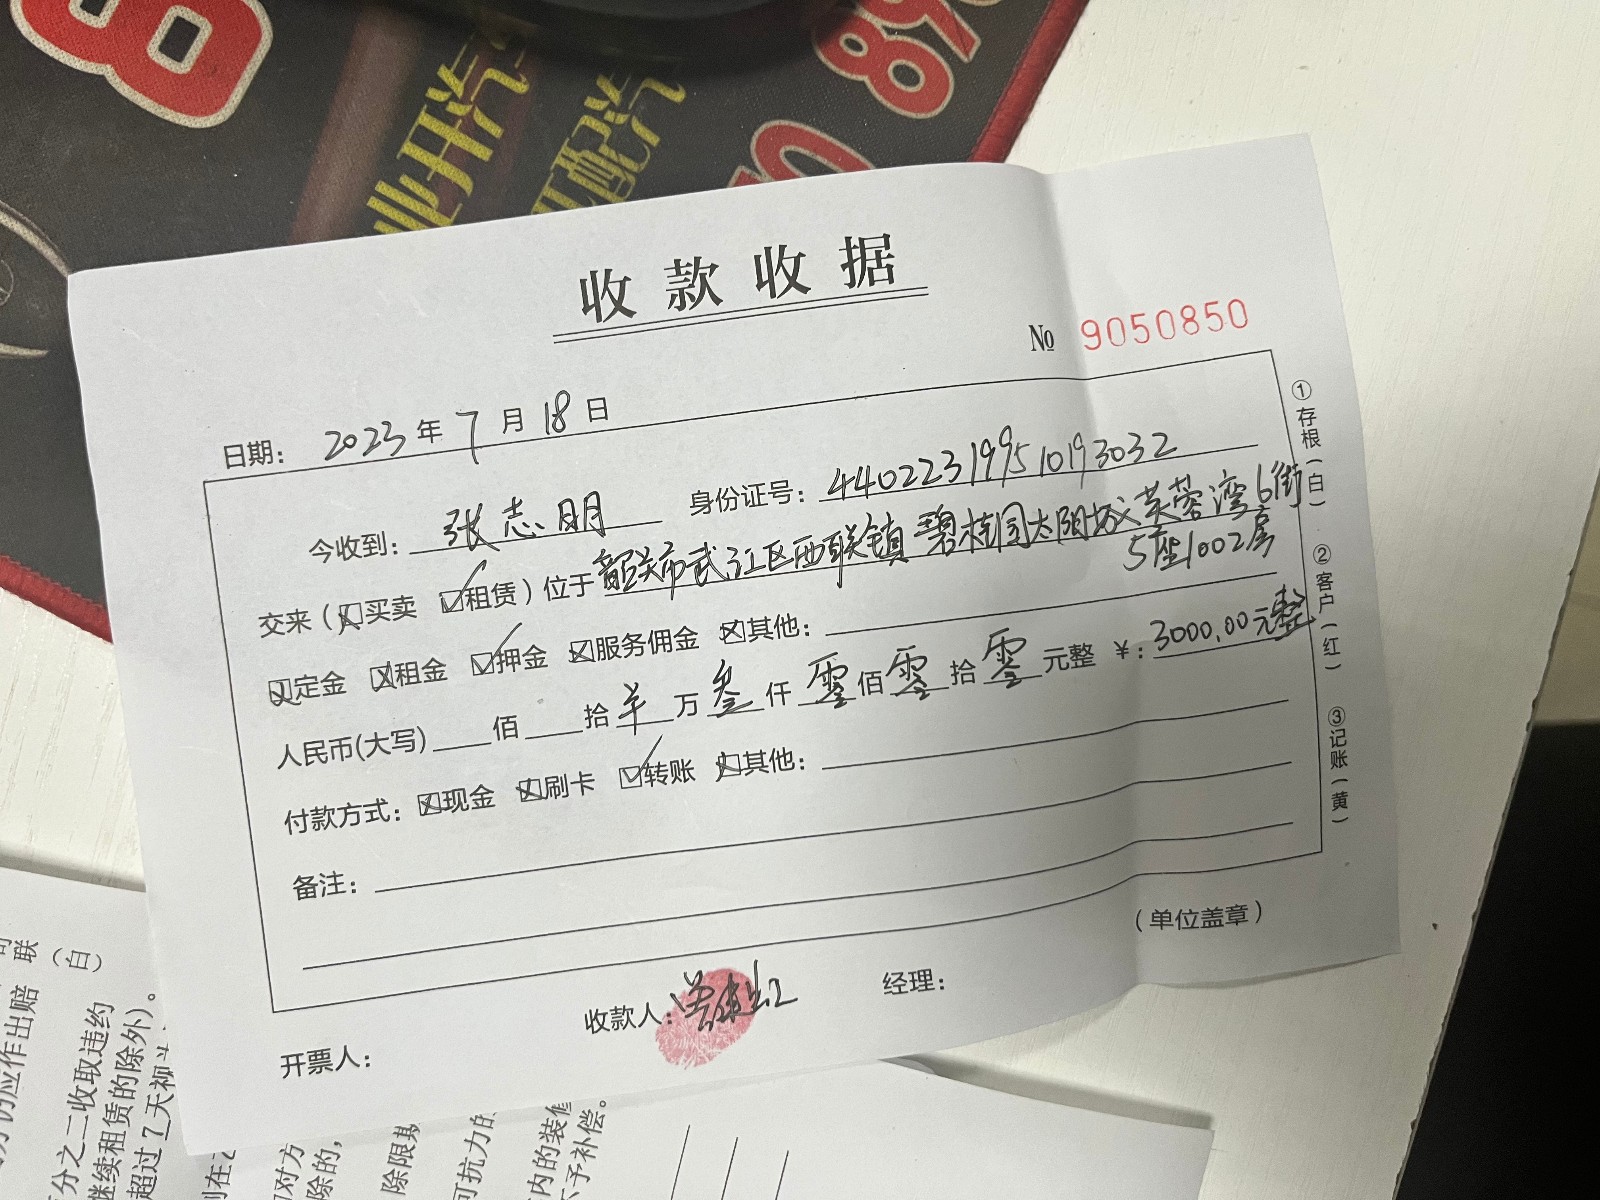 8
898
业开汽
汇配汽
收款收据
№ 9050850
日期: 2023 年 7 月 18 日
今收到: 张志明 身份证号: 440223199510193032
交来(□买卖 ☑租赁)位于 韶关市武江区西联镇碧桂园太阳城芙蓉湾6街
5座1002房
☒定金 ☒租金 ☑押金 ☒服务佣金 ☒其他:
人民币(大写) 佰 拾 羊 万 叁 仟 零 佰 零 拾 零 元整 ¥: 3000.00元整
付款方式: ☒现金 ☒刷卡 ☑转账 ☒其他:
备注:
(单位盖章)
开票人: 收款人: 经理:
①存根(白) ②客户(红) ③记账(黄)
联(白)
仍应作出赔
分之二收取违约
继续租赁的除外)。
超过7天视
对方
除的,
除限期
可抗力的
内的装修
不予补偿。